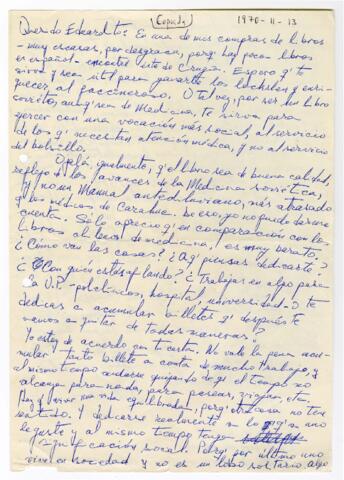 (Copiada)
1970-11-13
Querido Eduardito: En una de mis compras de libros
-muy escasas, por desgracia, porq' hay pocos libros
en español- encontré éste de Cirugía. Espero q' te
sirva y sea útil para ganarte los luchlen y enri-
quecer, al facineroso. O tal vez, por ser un libro
soviético, aunq' sea de Medicina, te sirva para
ejercer con una vocación más social, al servicio
de los q' necesitan atención médica, y no al servicio
del bolsillo.
Ojalá, igualmente, q' el libro sea de buena calidad,
reflejo de los avances de la Medicina soviética,
y no un Manual antediluviano, más atrasado
q' los médicos de Carahue. Pero eso, yo no puedo darme
cuenta. Sólo aprecio q' en comparación con los
libros chilenos de medicina, es muy barato.
¿Cómo van las cosas? ¿A q' piensas dedicarte?
¿Con quién estás pololeando? ¿Trabajas en algo para
la U.P. -policlínicos, hospital, universidad-? ¿te
dedicas a acumular billetes q' después te
vamos a quitar de todas maneras?
Yo estoy de acuerdo con tu carta. No vale la pena acu-
mular tanto billete a costa de mucho trabajo, y
al mismo tiempo andarse quejando de q' el tiempo no
alcanza para nada, para pasear, viajar, etc.
Hay q' vivir una vida equilibrada, porq' otra cosa no tiene
sentido. Y dedicarse realmente a lo q' a uno
le guste y al mismo tiempo tenga
significación social. Pero, por último uno
vive en sociedad y no es un lobo solitario. Algo